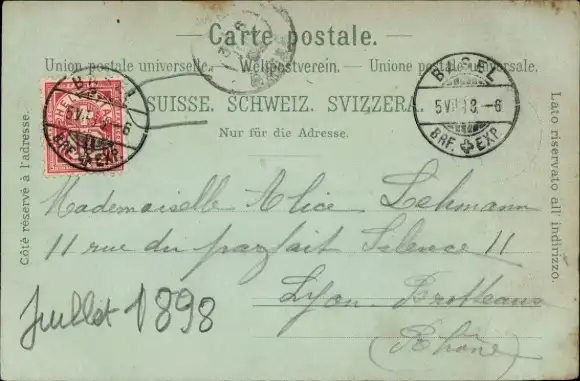 Carte postale.
Union postale universelle. – Weltpostverein. – Unione postale universale.
SUISSE. SCHWEIZ. SVIZZERA.
Nur für die Adresse.
Côté réservé à l'adresse.
Lato riservato all' indirizzo.
BASEL
BRF. EXP.
BASEL
-6
BRF. EXP.
Mademoiselle Alice Lehmann
11 rue du parfait Silence 11
Lyon-Brotteaux
(Rhône)
Juillet 1898